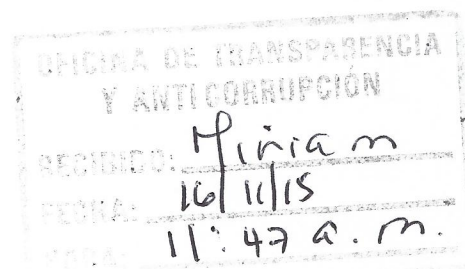 OFICINA DE TRANSPARENCIA
Y ANTICORRUPCIÓN
RECIBIDO: Miriam
FECHA: 16/11/15
HORA: 11:47 a.m.